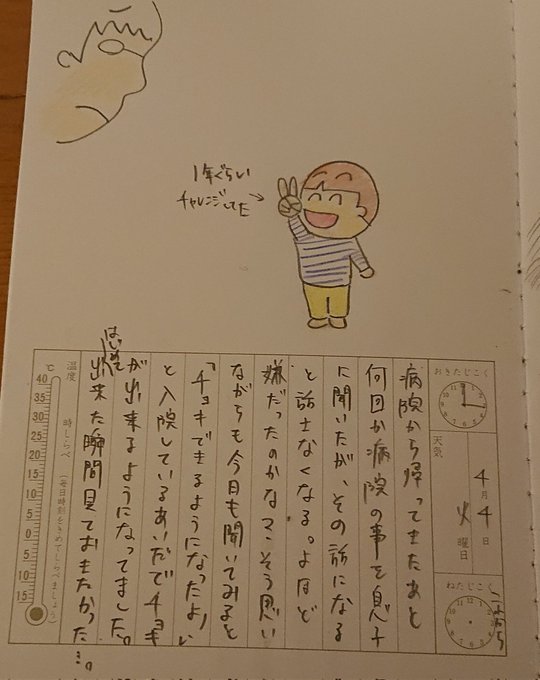 1年ぐらい
チャレンジしてた→
おきたじこく
4月4日
火曜日
天気
ねたじこく
これから
病院から帰ってきたあと
何回か病院の事を息子
に聞いたが、その話になる
と話さなくなる。よほど
嫌だったのかな?そう思い
ながらも今日も聞いてみると
「チョキできるようになったよ!」
と入院しているあいだでチョキ
が出来るようになってました。
はじめて
出来た瞬間見ておきたかった…。
温度
時しらべ
(毎日時刻をきめてしらべましょう)
℃
40
35
30
25
20
15
10
5
0
5
10
15